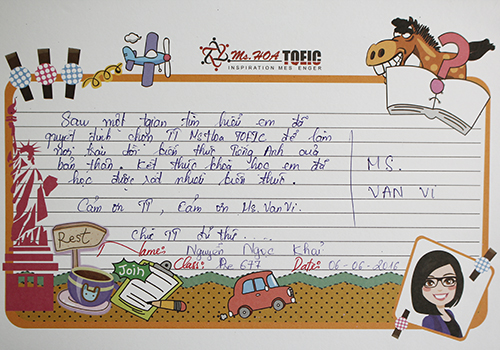 Ms.HOA TOEIC
INSPIRATION MES. ENGER
Sau một gian tìm hiểu em đã
quyết định chọn TT MsHoa TOEIC để làm
nơi trau dồi kiến thức Tiếng Anh của
bản thân. Kết thúc khoá học em đã
học được rất nhiều kiến thức.
Cảm ơn TT, Cảm ơn Ms.VanVi.
Chúc TT
MS.
VAN VI
Rest
Join
Name: Nguyễn Ngọc Khải
Class: Pre 677 Date: 06-06-2016